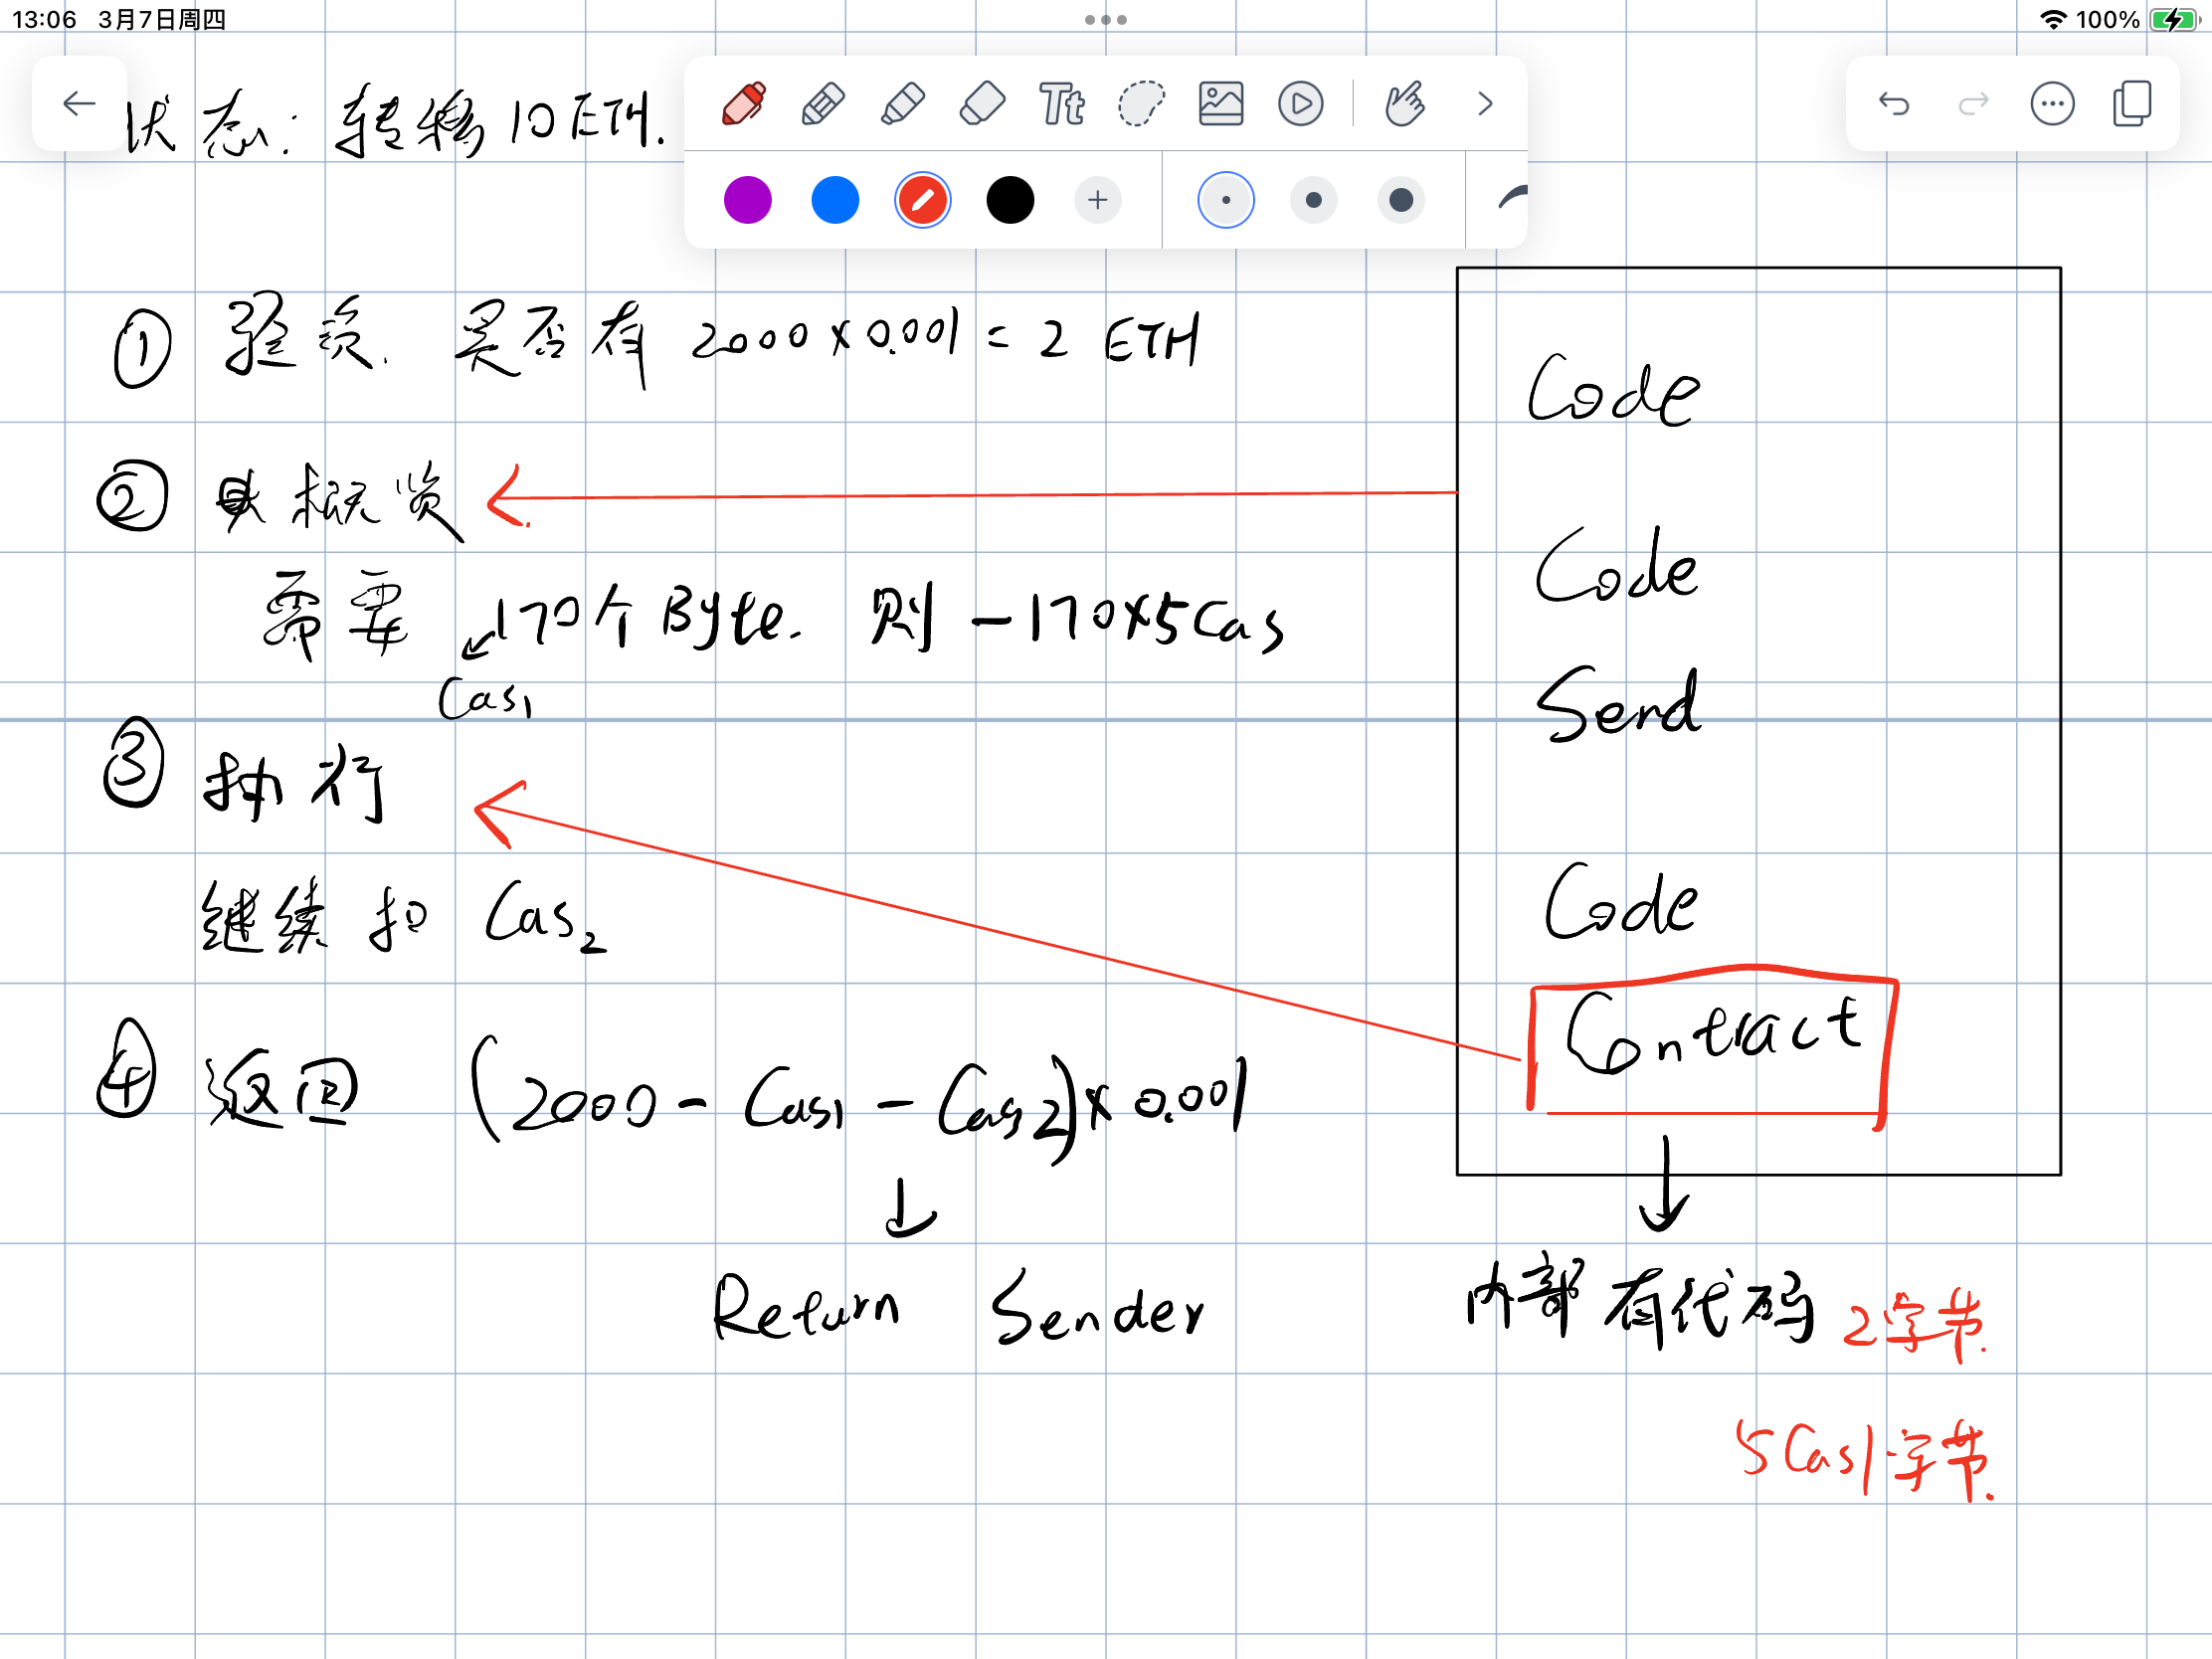 13:06 3月7日周四
100%
状态: 转移 10 ETH.
Tt
① 验资. 是否有 2000 x 0.001 = 2 ETH
② 概览
需要 170个Byte. 则 -170x5Cas
Cas1
③ 执行
继续扣 Cas2
④ 返回 (2000 - Cas1 - Cas2) x 0.001
↓
Return Sender
Code
Code
Send
Code
Contract
↓
内部有代码 2字节.
5Cas1字节.